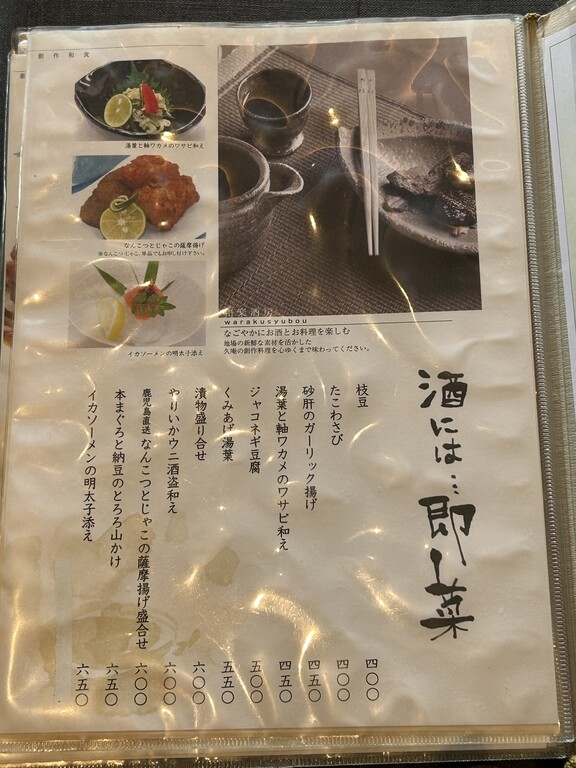 創作和食
湯葉と軸ワカメのワサビ和え
なんこつとじゃこの薩摩揚げ
※なんこつとじゃこ、単品でもお申し付け下さい。
イカソーメンの明太子添え
和楽酒房
warakusyubou
なごやかにお酒とお料理を楽しむ
地場の新鮮な素材を活かした
久庵の創作料理を心ゆくまで味わってください。
酒には…即し菜
枝豆 四〇〇
たこわさび 四〇〇
砂肝のガーリック揚げ 四五〇
湯葉と軸ワカメのワサビ和え 四五〇
ジャコネギ豆腐 五〇〇
くみあげ湯葉 五五〇
漬物盛り合せ 六〇〇
やりいかウニ酒盗和え 六〇〇
鹿児島直送 なんこつとじゃこの薩摩揚げ盛合せ 六〇〇
本まぐろと納豆のとろろ山かけ 六五〇
イカソーメンの明太子添え 六五〇